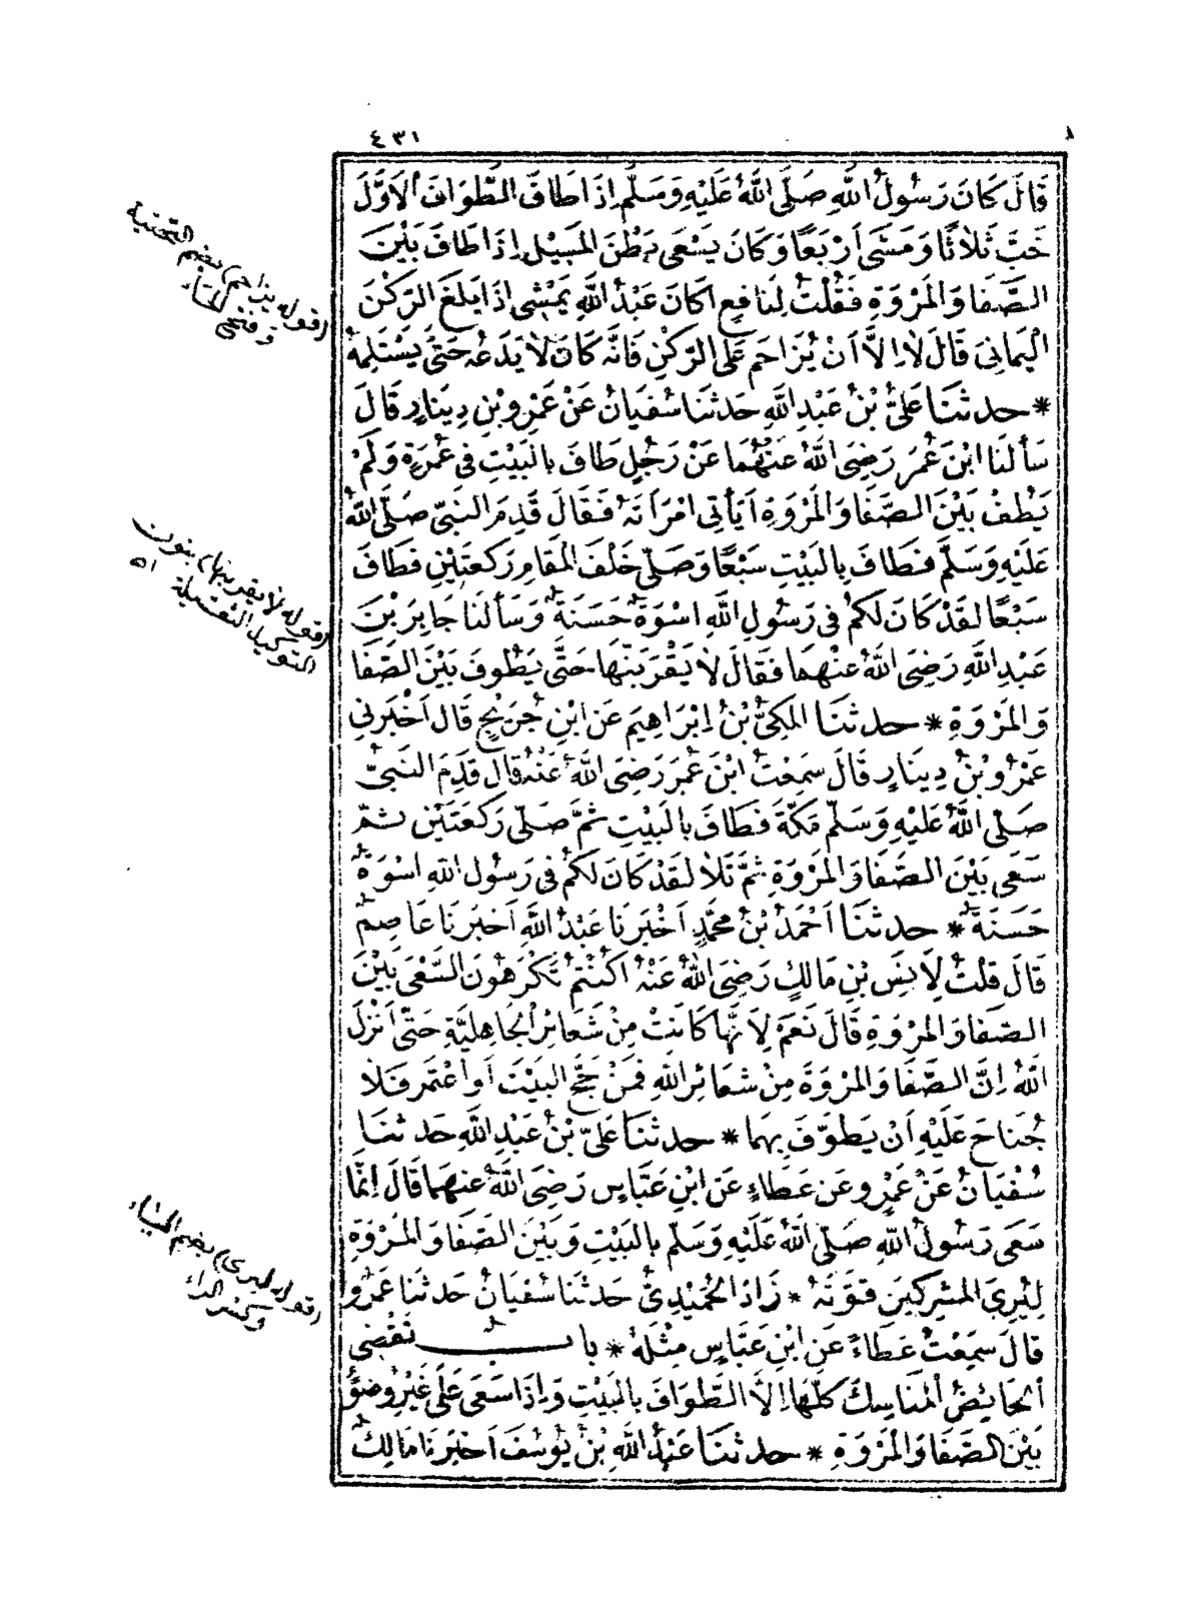 ٤٣١
قَالَ كَانَ رَسُولُ اللَّهِ صَلَّى اللَّهُ عَلَيْهِ وَسَلَّمَ إِذَا طَافَ الطَّوَافَ الْأَوَّلَ
خَبَّ ثَلَاثًا وَمَشَى أَرْبَعًا وَكَانَ يَسْعَى بَطْنَ الْمَسِيلِ إِذَا طَافَ بَيْنَ
الصَّفَا وَالْمَرْوَةِ فَقُلْتُ لِنَافِعٍ أَكَانَ عَبْدُ اللَّهِ يَمْشِي إِذَا بَلَغَ الرُّكْنَ
الْيَمَانِيَ قَالَ لَا إِلَّا أَنْ يُزَاحَمَ عَلَى الرُّكْنِ فَإِنَّهُ كَانَ لَا يَدَعُهُ حَتَّى يَسْتَلِمَهُ
* حدثنَا عَلِيُّ بْنُ عَبْدِ اللَّهِ حَدثنَا سُفْيَانُ عَنْ عَمْرِو بْنِ دِينَارٍ قَالَ
سَأَلْنَا ابْنَ عُمَرَ رَضِيَ اللَّهُ عَنْهُمَا عَنْ رَجُلٍ طَافَ بِالْبَيْتِ فِي عُمْرَةٍ وَلَمْ
يَطُفْ بَيْنَ الصَّفَا وَالْمَرْوَةِ أَيَأْتِي امْرَأَتَهُ فَقَالَ قَدِمَ النَّبِيُّ صَلَّى اللَّهُ
عَلَيْهِ وَسَلَّمَ فَطَافَ بِالْبَيْتِ سَبْعًا وَصَلَّى خَلْفَ الْمَقَامِ رَكْعَتَيْنِ فَطَافَ
سَبْعًا لَقَدْ كَانَ لَكُمْ فِي رَسُولِ اللَّهِ أُسْوَةٌ حَسَنَةٌ وَسَأَلْنَا جَابِرَ بْنَ
عَبْدِ اللَّهِ رَضِيَ اللَّهُ عَنْهُمَا فَقَالَ لَا يَقْرَبَنَّهَا حَتَّى يَطُوفَ بَيْنَ الصَّفَا
وَالْمَرْوَةِ * حدثنَا الْمَكِّيُّ بْنُ إِبْرَاهِيمَ عَنِ ابْنِ جُرَيْجٍ قَالَ أَخْبَرَنِي
عَمْرُو بْنُ دِينَارٍ قَالَ سَمِعْتُ ابْنَ عُمَرَ رَضِيَ اللَّهُ عَنْهُ قَالَ قَدِمَ النَّبِيُّ
صَلَّى اللَّهُ عَلَيْهِ وَسَلَّمَ مَكَّةَ فَطَافَ بِالْبَيْتِ ثُمَّ صَلَّى رَكْعَتَيْنِ ثُمَّ
سَعَى بَيْنَ الصَّفَا وَالْمَرْوَةِ ثُمَّ تَلَا لَقَدْ كَانَ لَكُمْ فِي رَسُولِ اللَّهِ أُسْوَةٌ
حَسَنَةٌ * حدثنَا أَحْمَدُ بْنُ مُحَمَّدٍ أَخْبَرَنَا عَبْدُ اللَّهِ أَخْبَرَنَا عَاصِمٌ
قَالَ قُلْتُ لِأَنَسِ بْنِ مَالِكٍ رَضِيَ اللَّهُ عَنْهُ أَكُنْتُمْ تَكْرَهُونَ السَّعْيَ بَيْنَ
الصَّفَا وَالْمَرْوَةِ قَالَ نَعَمْ لِأَنَّهَا كَانَتْ مِنْ شَعَائِرِ الْجَاهِلِيَّةِ حَتَّى أَنْزَلَ
اللَّهُ إِنَّ الصَّفَا وَالْمَرْوَةَ مِنْ شَعَائِرِ اللَّهِ فَمَنْ حَجَّ الْبَيْتَ أَوِ اعْتَمَرَ فَلَا
جُنَاحَ عَلَيْهِ أَنْ يَطَّوَّفَ بِهِمَا * حدثنَا عَلِيُّ بْنُ عَبْدِ اللَّهِ حَدثنَا
سُفْيَانُ عَنْ عَمْرٍو عَنْ عَطَاءٍ عَنِ ابْنِ عَبَّاسٍ رَضِيَ اللَّهُ عَنْهُمَا قَالَ إِنَّمَا
سَعَى رَسُولُ اللَّهِ صَلَّى اللَّهُ عَلَيْهِ وَسَلَّمَ بِالْبَيْتِ وَبَيْنَ الصَّفَا وَالْمَرْوَةِ
لِيُرِيَ الْمُشْرِكِينَ قُوَّتَهُ * زَادَ الْحُمَيْدِيُّ حَدثنَا سُفْيَانُ حَدثنَا عَمْرٌو
قَالَ سَمِعْتُ عَطَاءً عَنِ ابْنِ عَبَّاسٍ مِثْلَهُ * بابٌ تَقْضِي
الْحَائِضُ الْمَنَاسِكَ كُلَّهَا إِلَّا الطَّوَافَ بِالْبَيْتِ وَإِذَا سَعَى عَلَى غَيْرِ وُضُوءٍ
بَيْنَ الصَّفَا وَالْمَرْوَةِ * حدثنَا عَبْدُ اللَّهِ بْنُ يُوسُفَ أَخْبَرَنَا مَالِكٌ
(قوله يزاحم) بضم التحتية
وفتح الحاء
(قوله لا يقربنها) بنون
التوكيد الثقيلة اه
(قوله ليرى) بضم الياء
وكسر الراء